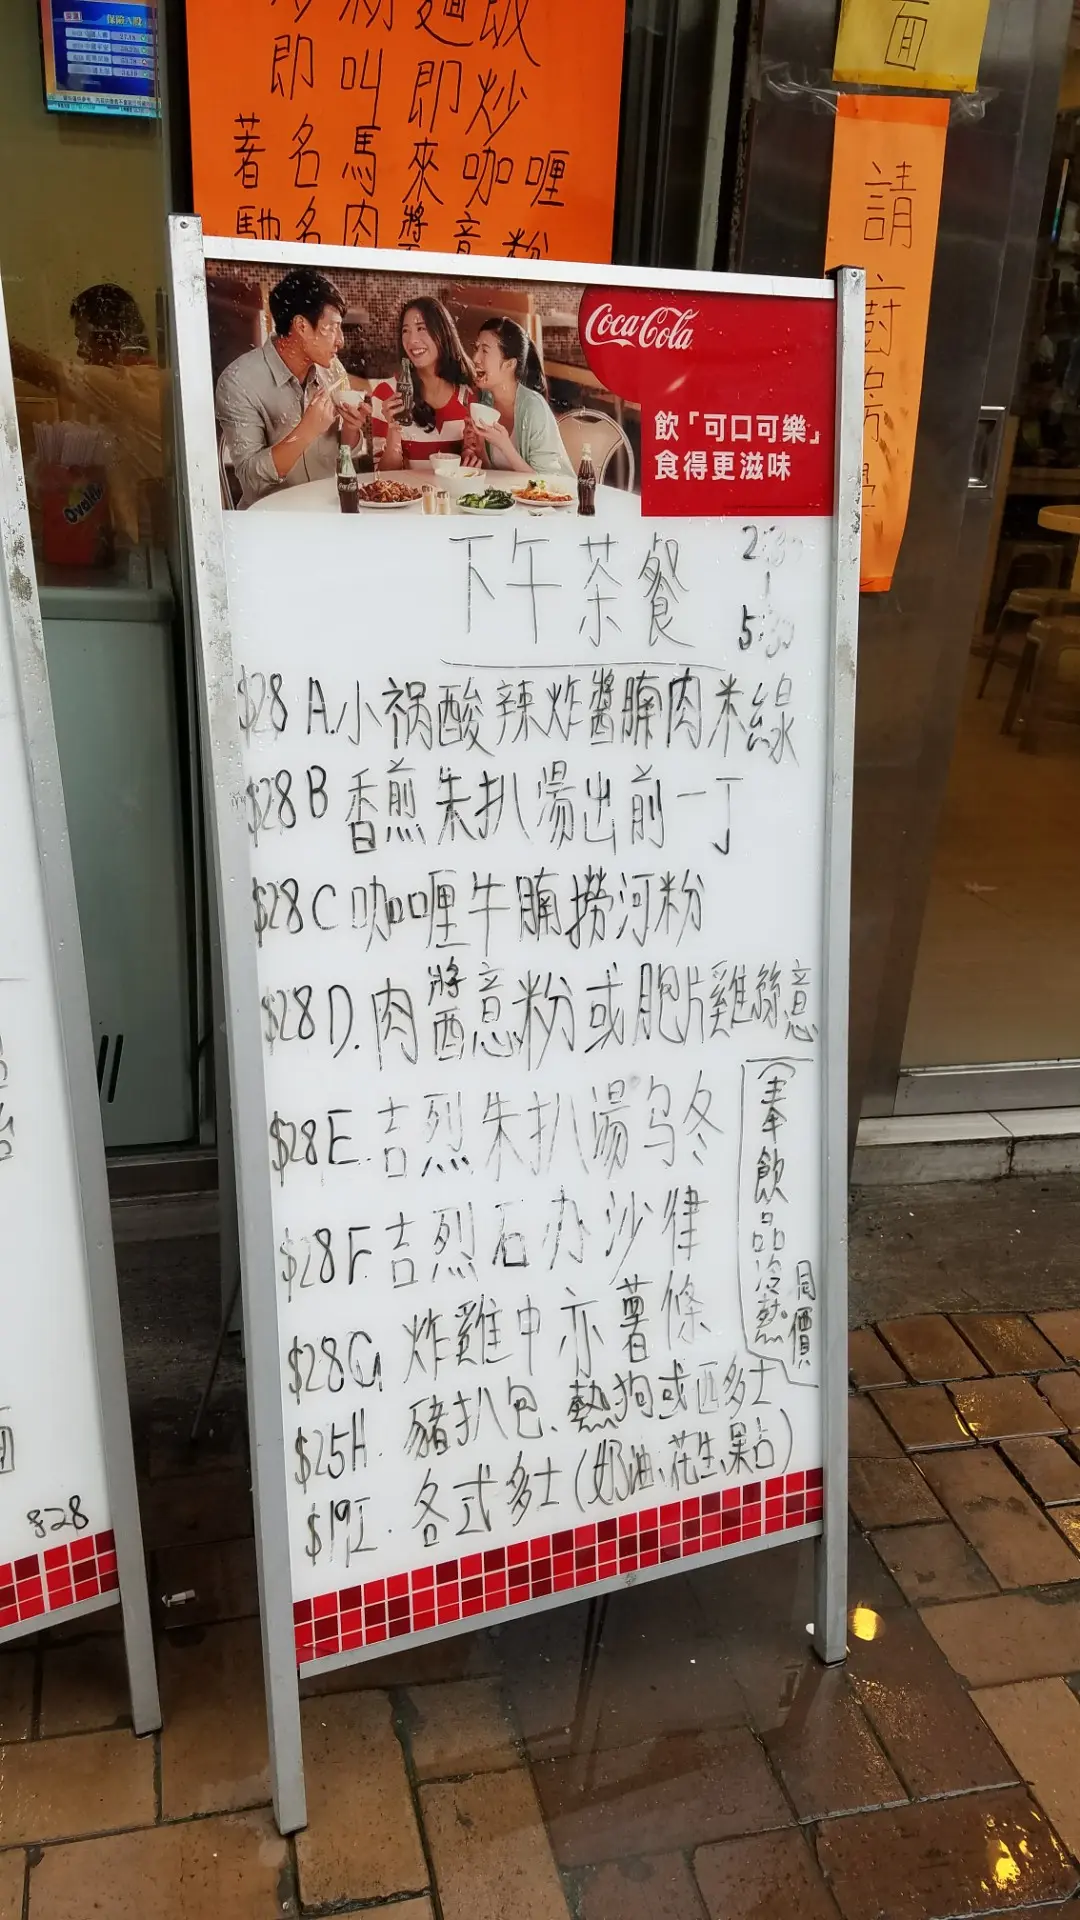 保險入股
即叫即炒
著名馬來咖喱
馳名肉醬意粉
面
請
廚
Ovaltine
Coca-Cola
飲「可口可樂」
食得更滋味
下午茶餐
2:30
|
5:30
$28 A.小祸酸辣炸醬腩肉米線
$28 B 香煎朱扒湯出前一丁
$28 C 咖喱牛腩撈河粉
$28 D.肉醬意粉或肥片雞絲意
$28 E.吉烈朱扒湯乌冬
$28 F.吉烈石办沙律
$28 G 炸雞中亦薯條
$25 H 豬扒包、熱狗或西多士
$19 I.各式多士(奶油、花生、果占)
飲品冷熱
同價
$28